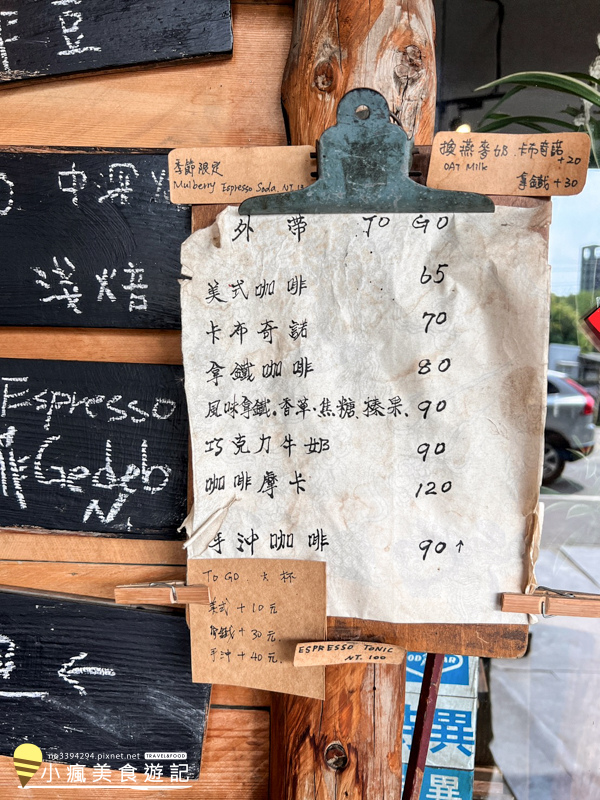 豆
中深
淺焙
Espresso
Gedeb
N.
季節限定
Mulberry Espresso Soda. NT
換燕麥奶 卡布奇諾
OAT Milk +20
拿鐵 +30
外帶 TO GO
美式咖啡 65
卡布奇諾 70
拿鐵咖啡 80
風味拿鐵.香草.焦糖.榛果. 90
巧克力牛奶 90
咖啡摩卡 120
手沖咖啡 90↑
TO GO 大杯
美式 +10元
拿鐵 +30元
手沖 +40元.
ESPRESSO TONIC
NT. 100
異
異
np3394294.pixnet.net TRAVEL&FOOD
小瘋美食遊記